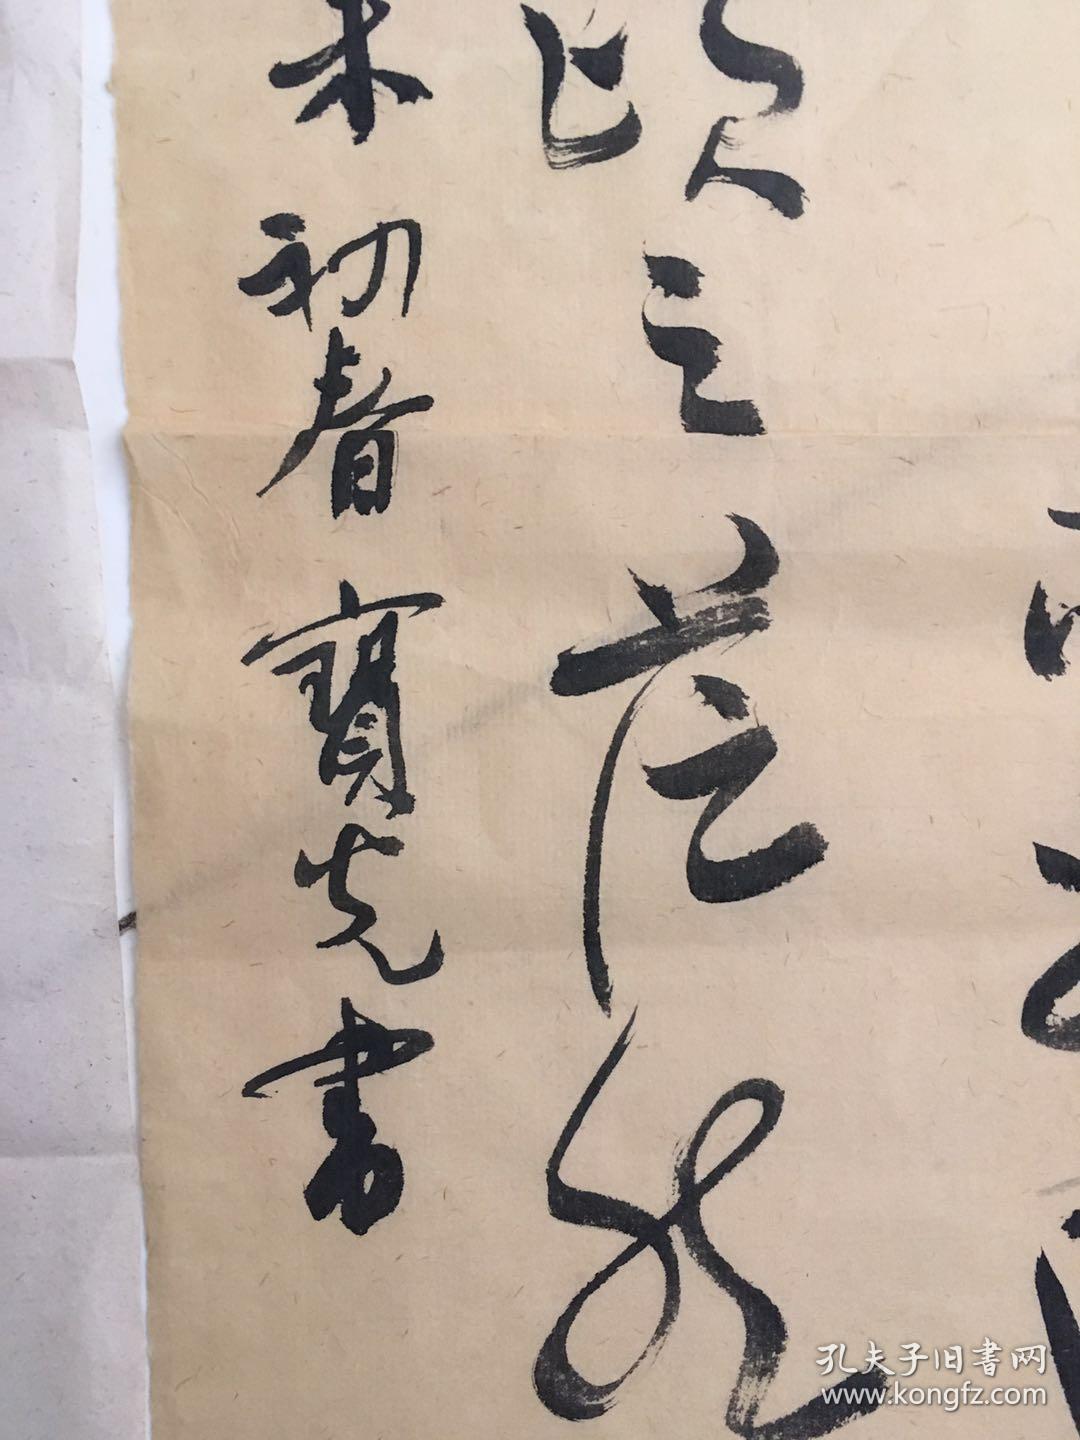 頃之茫然
未初春 寶光書
孔夫子旧書网
www.kongfz.com